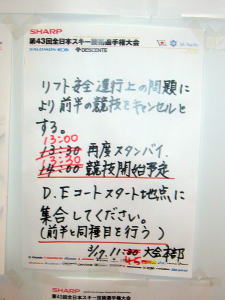 SHARP
第43回全日本スキー技術選手権大会
SALOMON DESCENTE
リフト安全運行上の問題に
より前半の競技をキャンセルと
する。
13:00
13:30 再度スタンバイ.
13:30
14:00 競技開始予定
D.Eコートスタート地点に
集合してください。
(前半と同種目を行う)
3/17. 11:30 大会本部
45
SHARP
第43回全日本スキー技術選手権大会